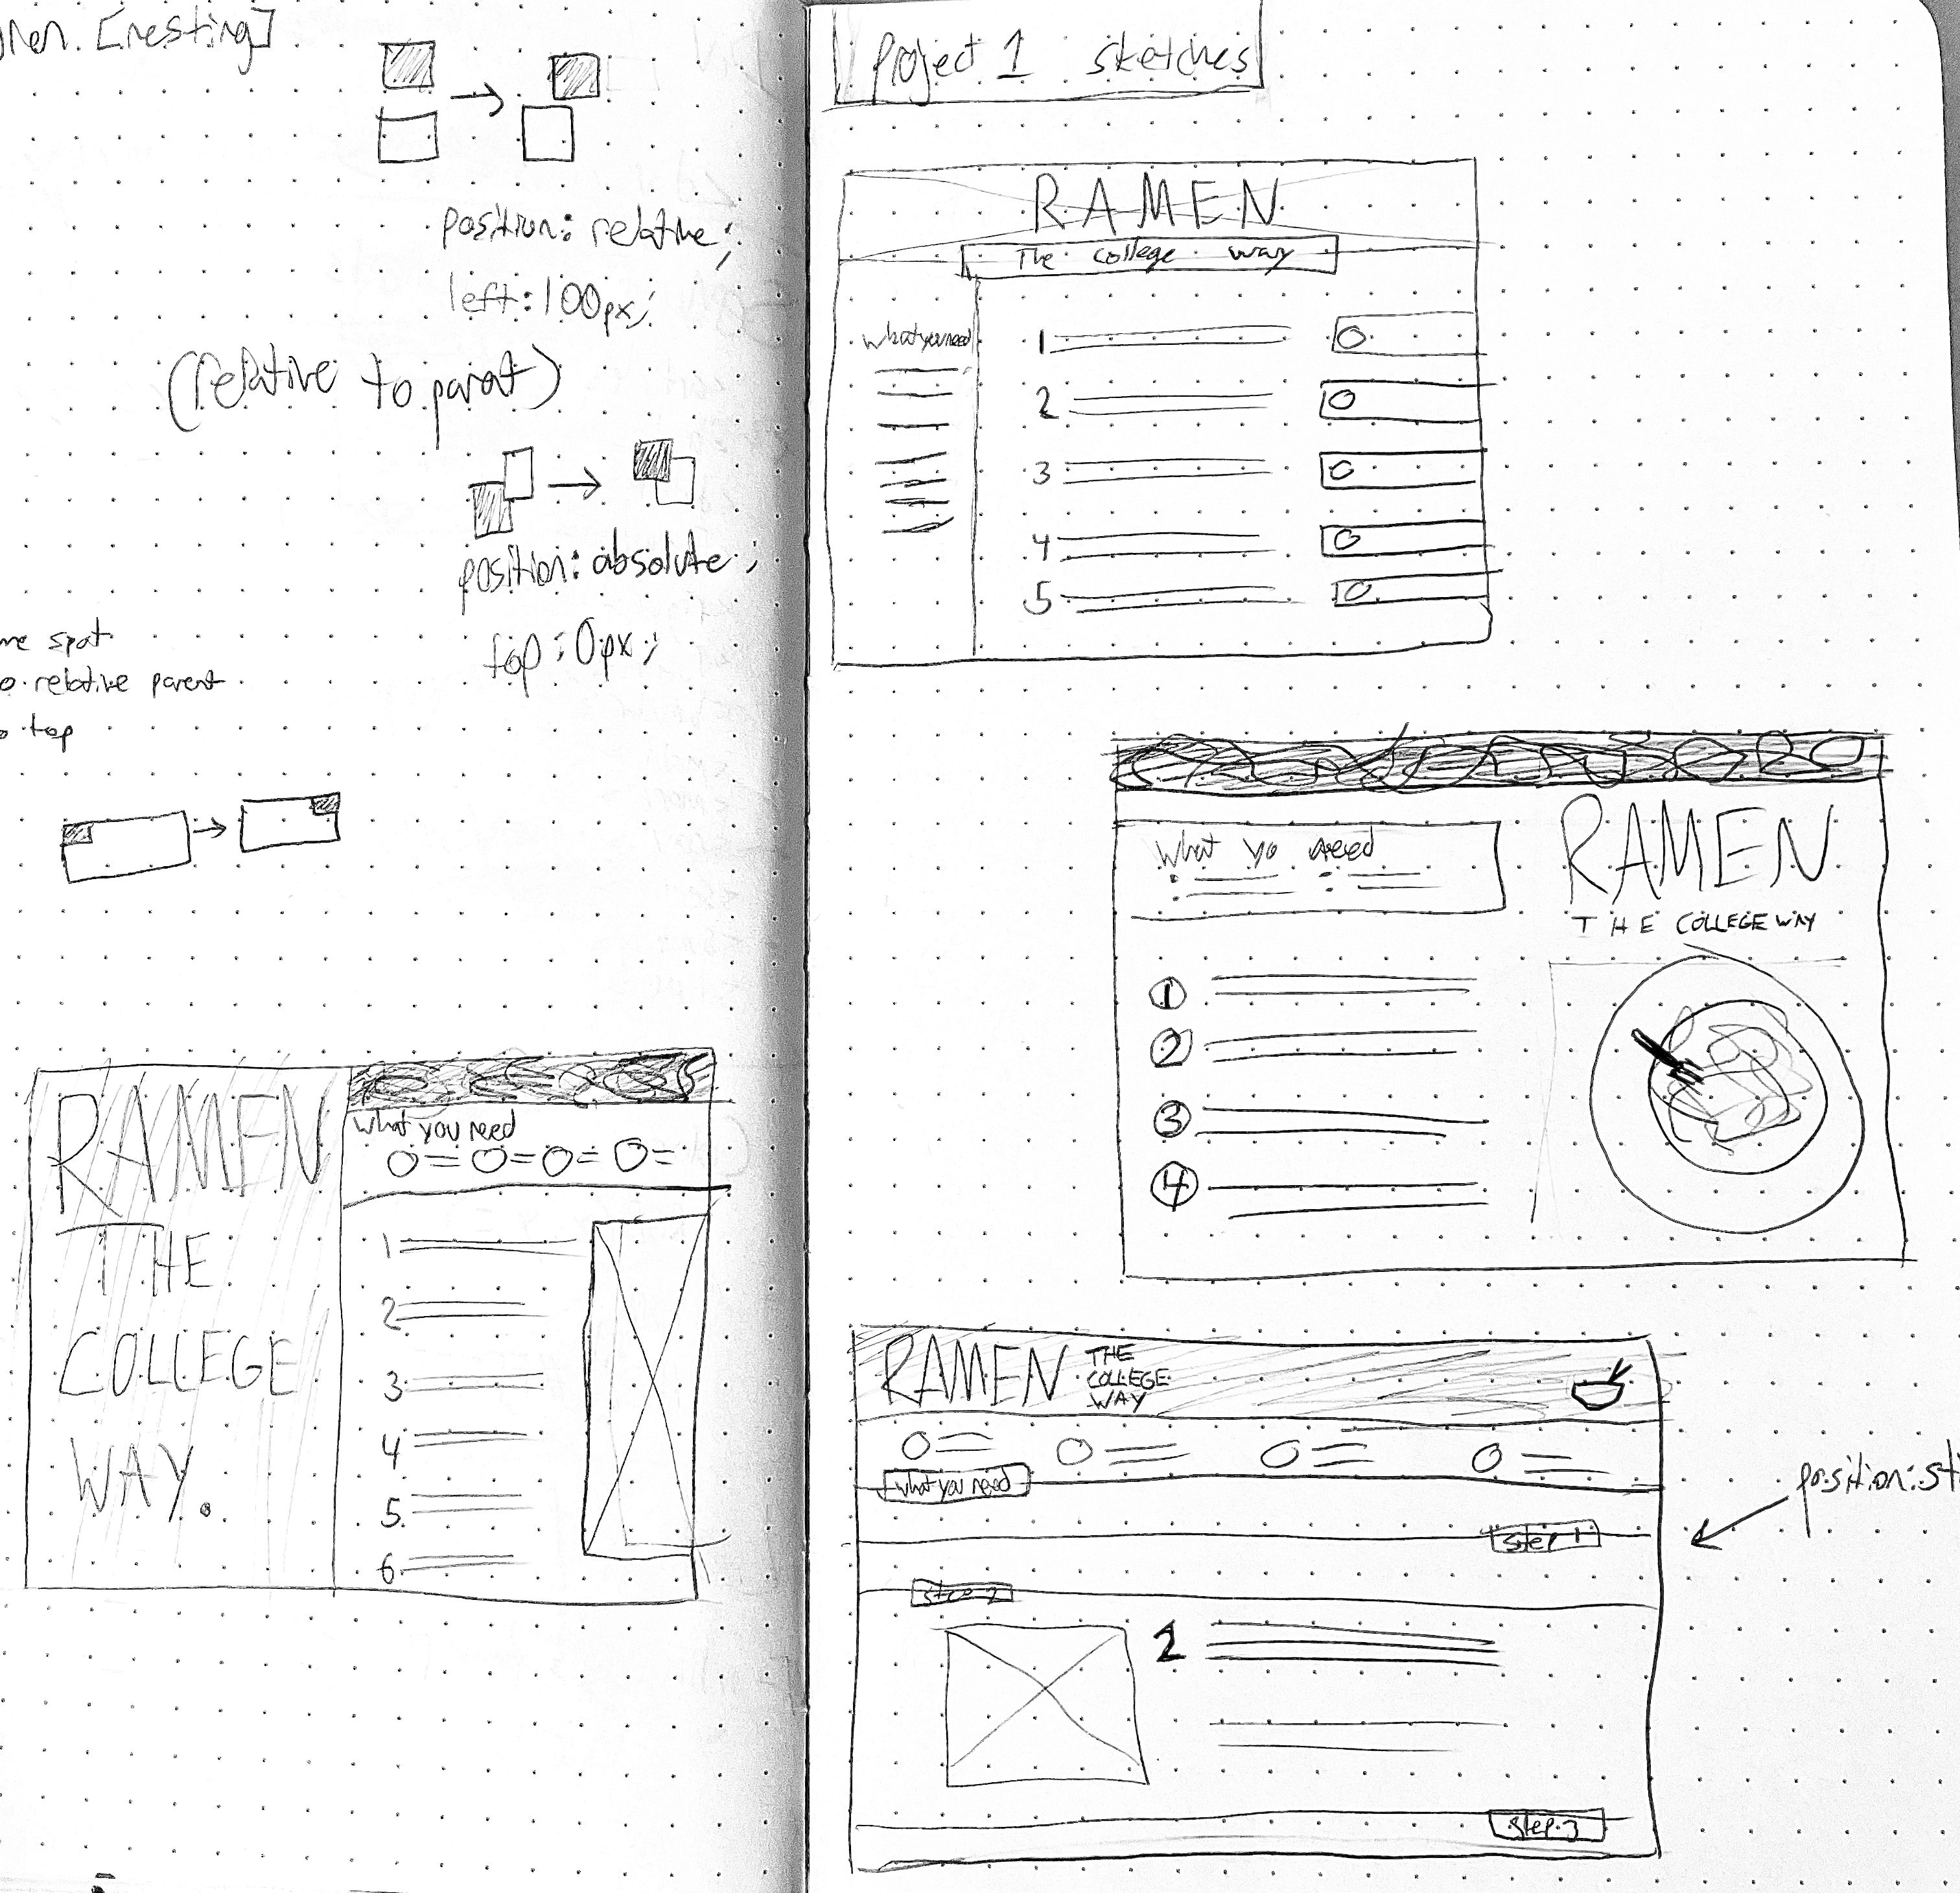 [nesting]
position: relative;
left: 100px;
(relative to parent)
position: absolute;
top: 0px;
spot
relative parent
top
RAMEN
THE
COLLEGE
WAY.
What you need
1
2
3
4
5
6
Project 1 sketches
RAMEN
The college way
What you need
1
2
3
4
5
What yo need
RAMEN
THE COLLEGE WAY
1
2
3
4
RAMEN THE
COLLEGE
WAY
What you need
position: sti
Step 1
Step 2
2
Step 3